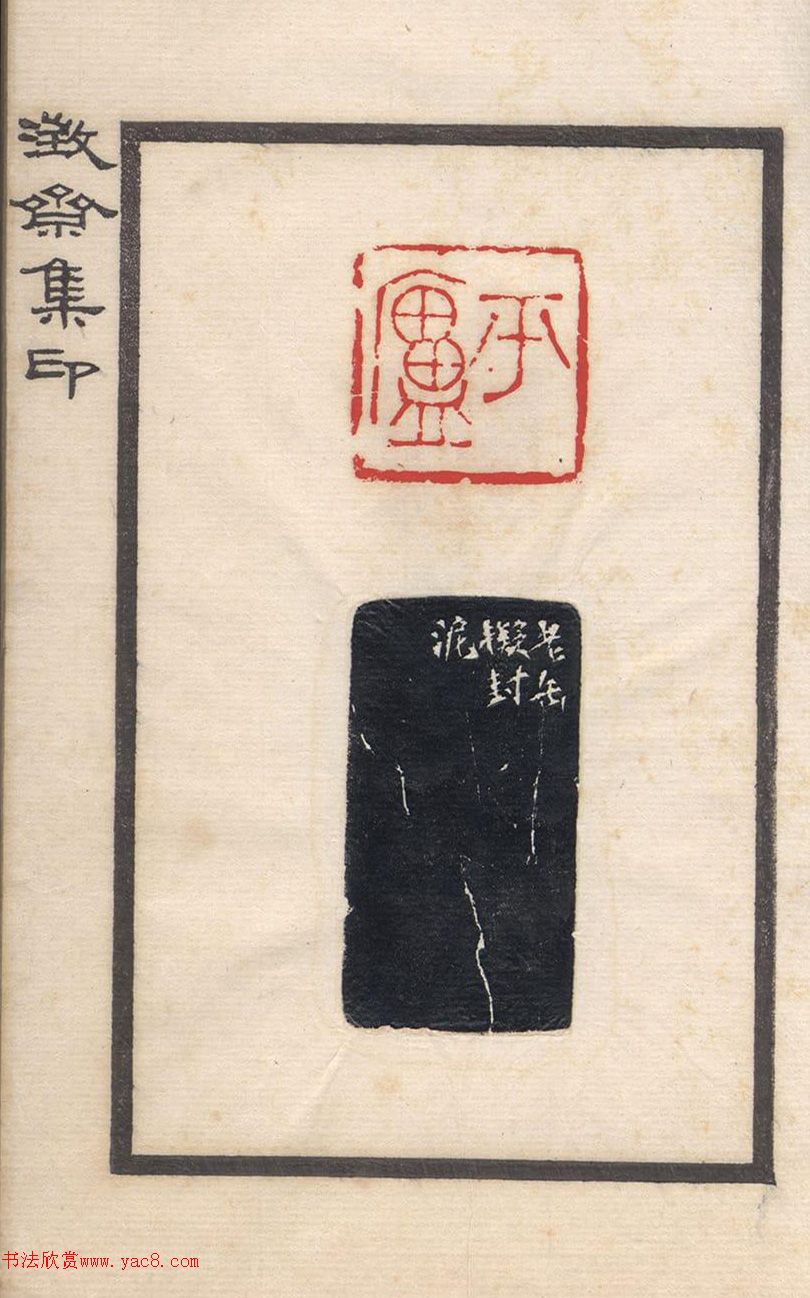 澂齋集印
平廬
老缶
擬封
泥
书法欣赏www.yac8.com